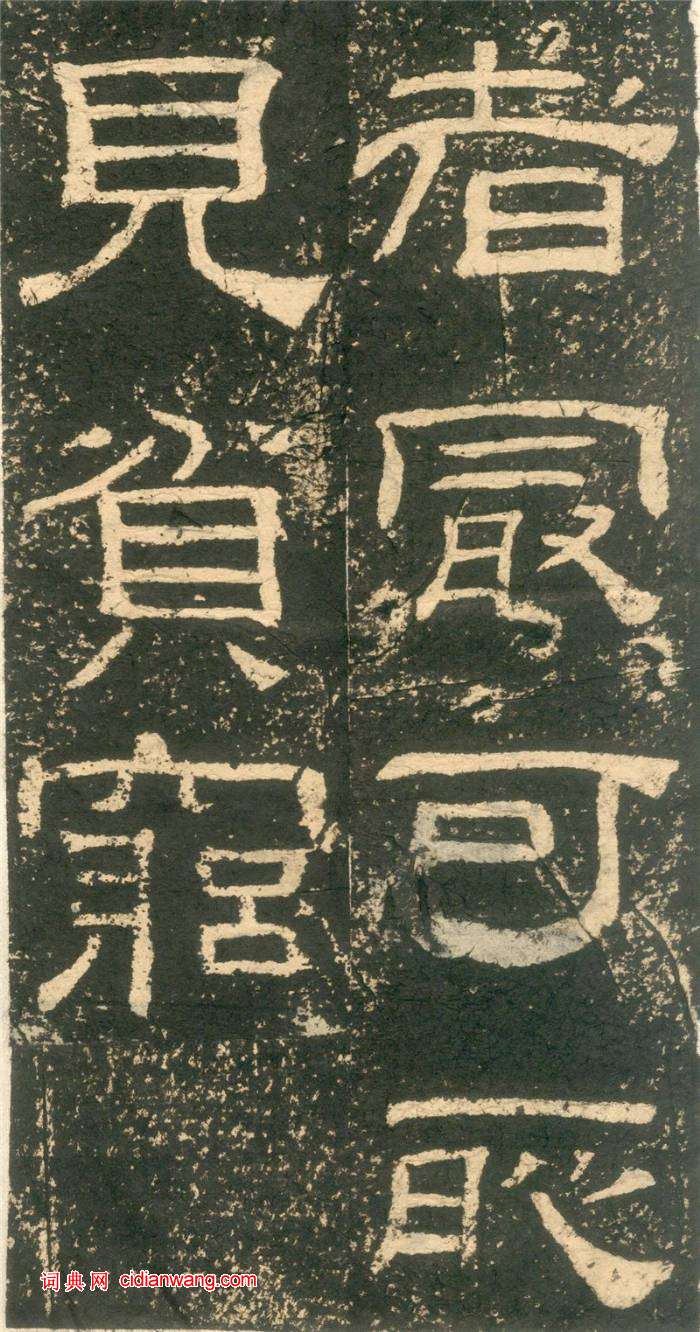 者最可
見貧窮
词典网 cidianwang.com